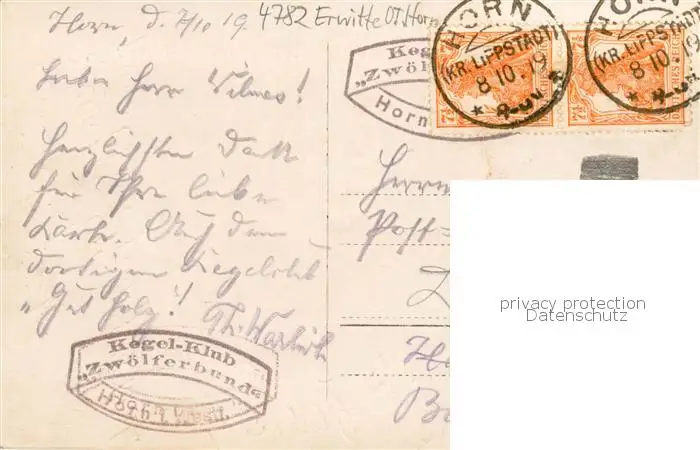 Horn, d. 7/10 19.
4782 Erwitte OT. Horn
Lieber Herr Vilmes!
Herzlichsten Dank
für Ihre liebe
Karte. Auf dem
dortigen Kegelclub
"Gut Holz"!
Kegel-Klub
„Zwölferbund"
Horn i. Westf.
Kegel
„Zwölf
Horn
HORN
(KR. LIPPSTADT)
8 10. 19
HORN
(KR. LIPPSTADT)
8 10. 19
7½
7½
Herrn
Post=
privacy protection
Datenschutz